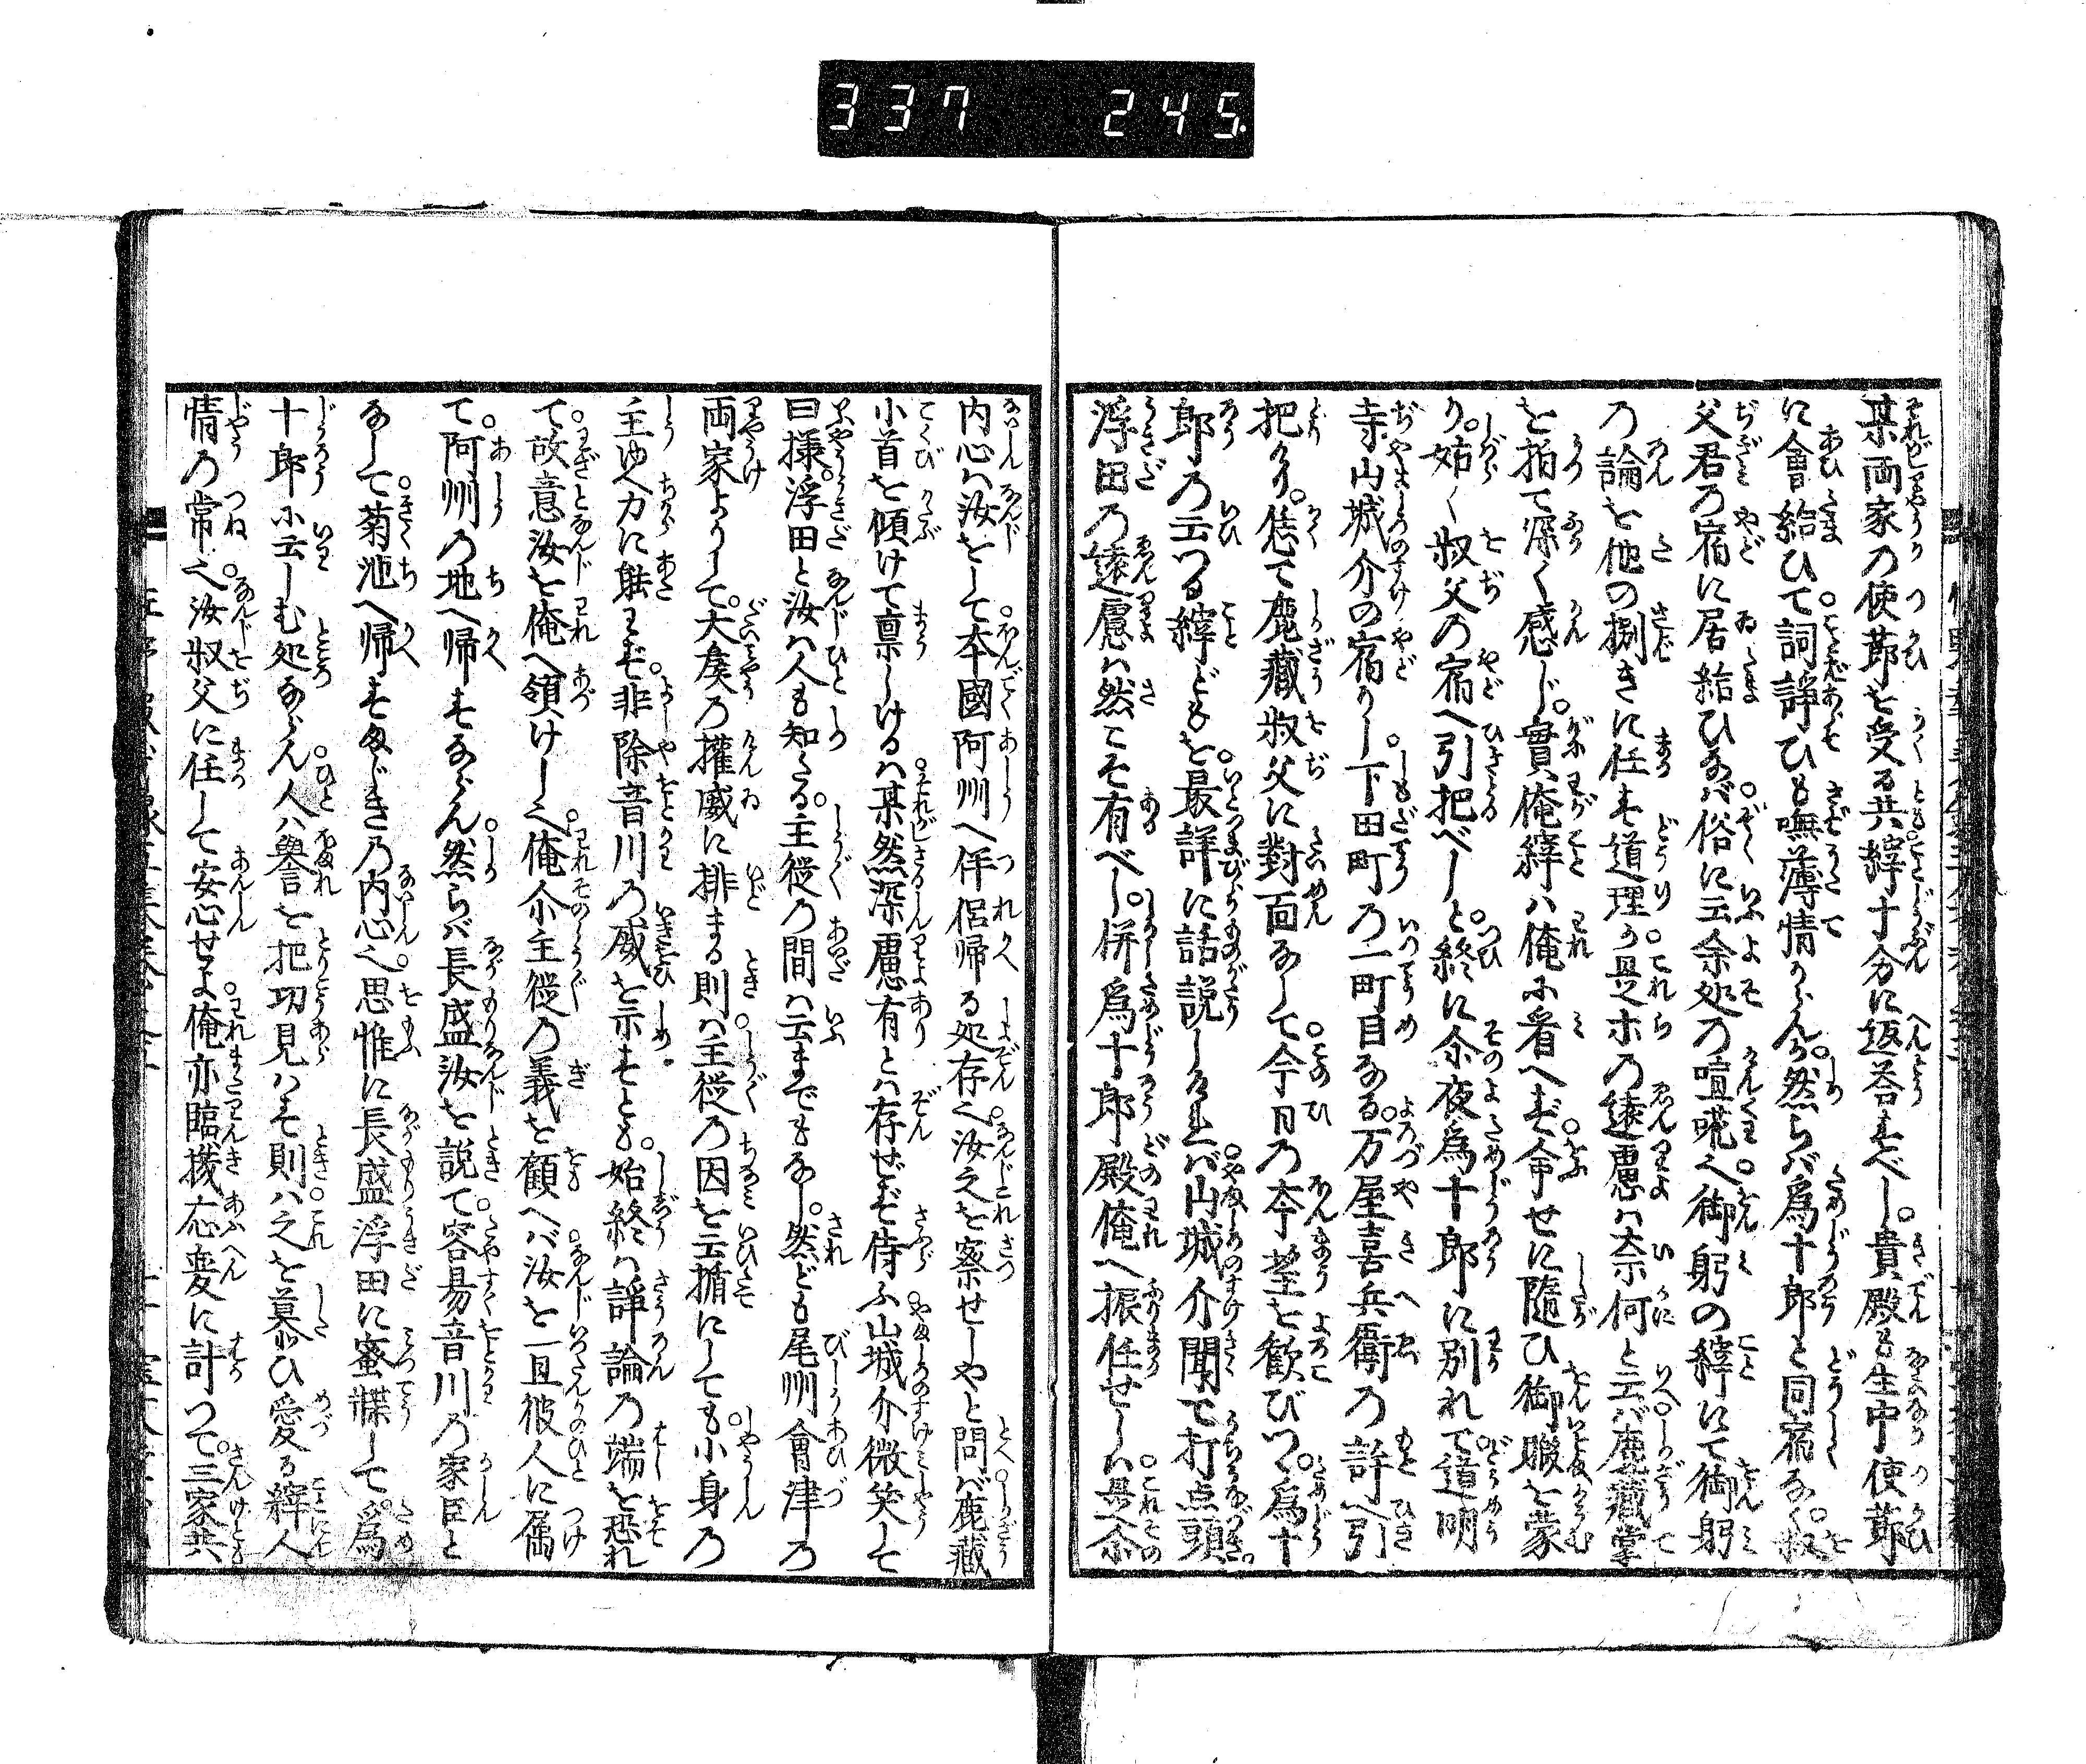 337 245
某両家の使莭を受る共縡十分に返荅すべし。貴殿も生中使莭
に會給ひて詞諍ひも嘸薄情からんが。然らば為十郎と同宿なく。叔
父君の宿に居給ひなば。俗に云余処の喧嘩へ御躬の縡にて御躬
の論を他の捌きに任す道理か。是ホの遠慮は奈何と云ば。鹿藏掌
を拍て深く感じ。實俺縡は俺に看へず。命せに隨ひ御暇を蒙
り。姑く叔父の宿へ引把べしと。終に尒夜為十郎に別れて。道明
寺山城介の宿かし。下田町の一町目なる。万屋喜兵衛の許へ引
把り。恁て鹿藏叔父に對面なして。今日の夲望を歓びつ。為十
郎の云つる縡どもを。最詳に話説しければ。山城介聞て打点頭。
浮田の遠慮は然こそ有べし。併為十郎殿俺へ振任せしは。是尒
内心は汝をして。夲國阿州へ伴侶帰る処存之。汝之を察せしやと問ば。鹿藏
小首を傾けて稟しけるは。某然深慮有とは存ぜず侍ふ。山城介微笑して
曰様。浮田と汝は人も知たる。主従の間は云までもなし。然ども尾州會津の
両家よりして。大矦の權威に排まる則は。主従の因を云楯にしても。小身の
主ゆへ力に能はず。非除音川の威を示すとも。始終は諍論の端を恐れ
て。故意汝を俺へ領けし之。俺尒主従の義を顧へば。汝を一旦彼人に属
て。阿州の地へ帰すならん。然らば長盛汝を説て。容易音川の家臣と
なして。菊池へ帰すまじきの内心之。思惟に長盛浮田に蜜諜して。為
十郎に云しむ処ならん。人は譽を把功見はす則は。之を慕ひ愛る縡人
情の常之。汝叔父に任して安心せよ。俺亦臨機応変に計つて。三家共